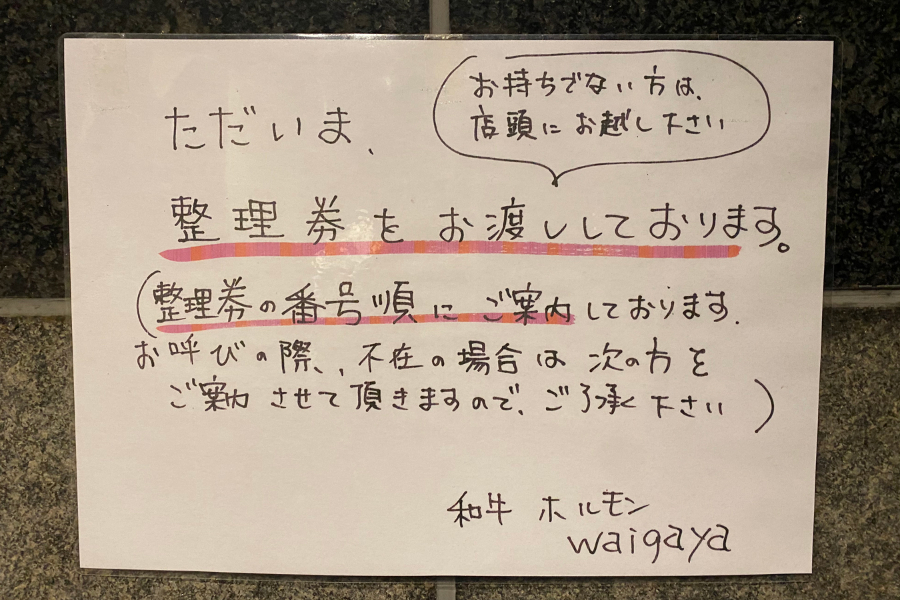 お持ちでない方は、
店頭にお越し下さい
ただいま、
整理券をお渡ししております。
(整理券の番号順にご案内しております.
お呼びの際、、不在の場合は次の方を
ご案内させて頂きますので、ご了承下さい)
和牛 ホルモン
waigaya